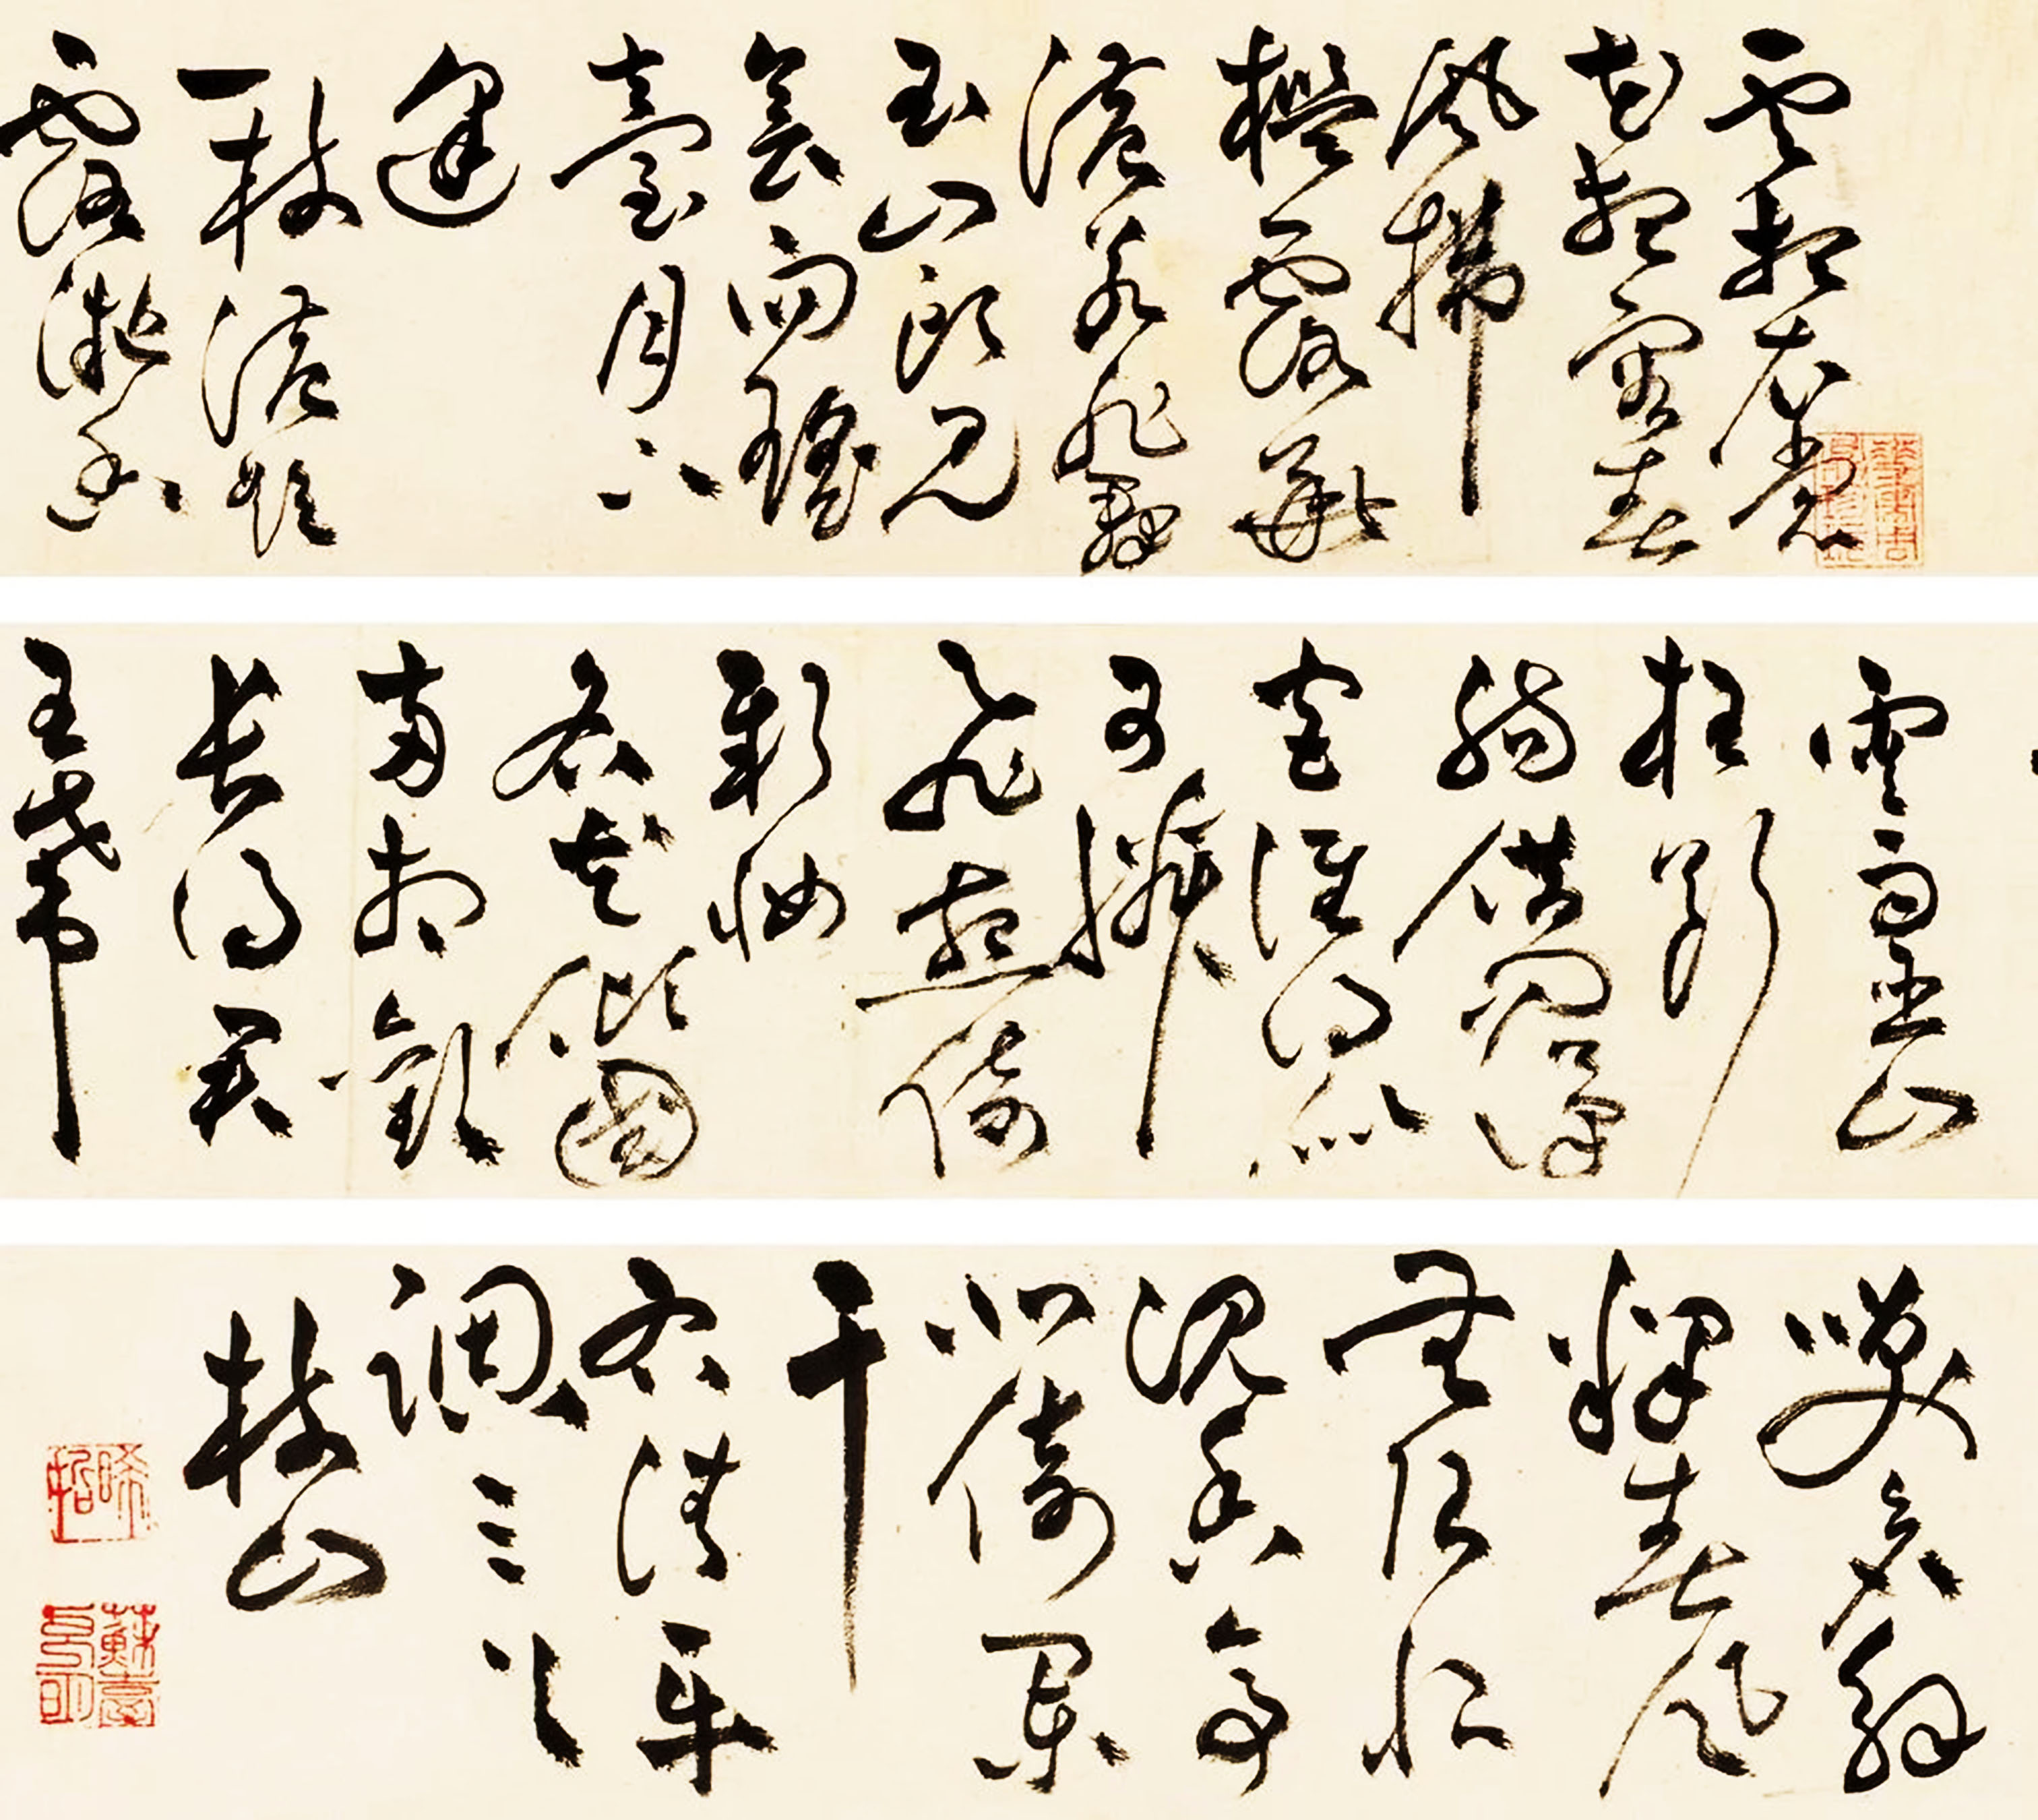 雲想衣裳
花想容春
風拂
檻露華
濃若非群
玉山頭見
會向瑤
臺月下
逢
一枝濃艷
露凝香
雲雨巫山
枉斷
腸借問漢
宮誰得似
可憐
飛燕倚
新妝
名花傾國
兩相歡
長得君
王帶
笑看解
釋春風
無限恨
沉香亭
北倚闌
干
右清平
調三首
枝山
晞哲